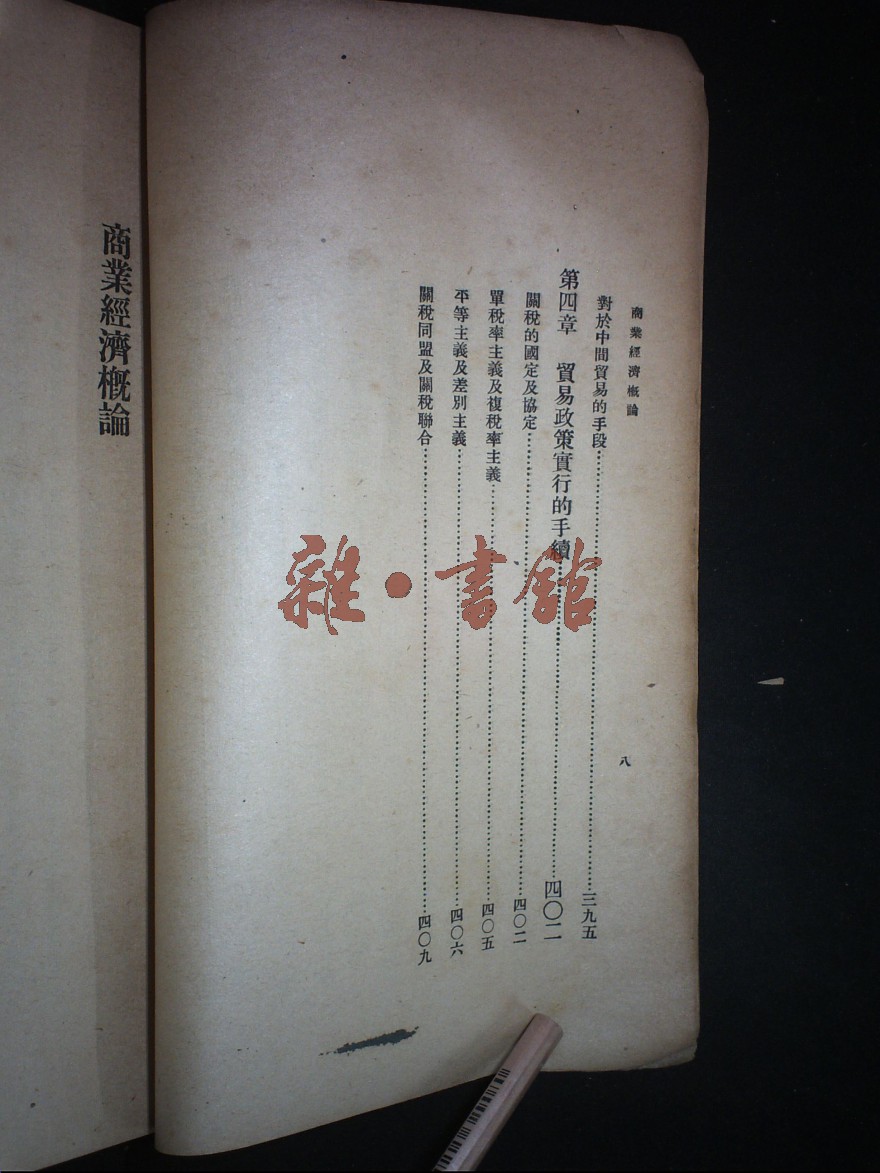 商業經濟概論
八
對於中間貿易的手段……三九五
第四章　貿易政策實行的手續……四〇二
關稅的國定及協定……四〇二
單稅率主義及複稅率主義……四〇五
平等主義及差別主義……四〇六
關稅同盟及關稅聯合……四〇九
商業經濟概論
雜·書館